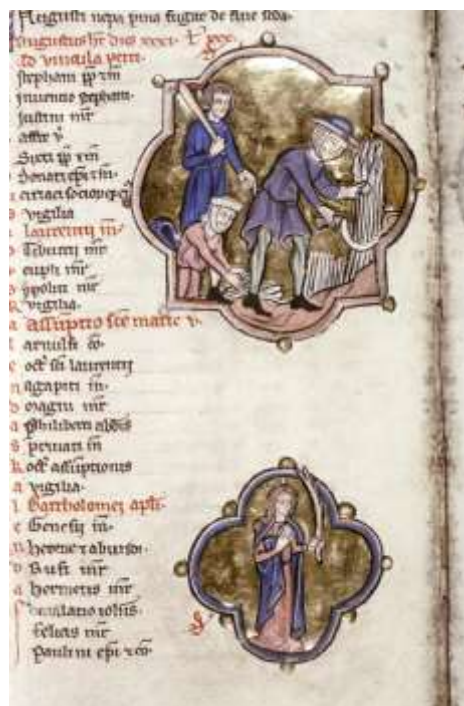 Augusti nepa
Augustus ht dies xxxi. l xxx.
Ad vincula petri.
Stephani pp
inventio stephani.
Justini mr
affre v
Sixti pp
Donati epi
ciriaci socior
vigilia
Laurentii m
Tiburtii mr
eupli mr
ypoliti mr
vigilia.
Assumptio sce marie v.
arnulfi
oct sci laurentii
agapiti m.
magni mr
philiberti abbis
privati m
oct assumptionis
vigilia.
Bartholomei apli.
Genesii m.
herenei abundi.
Rufi mr
hermetis mr
decollatio iohis.
felicis mr
Paulini epi